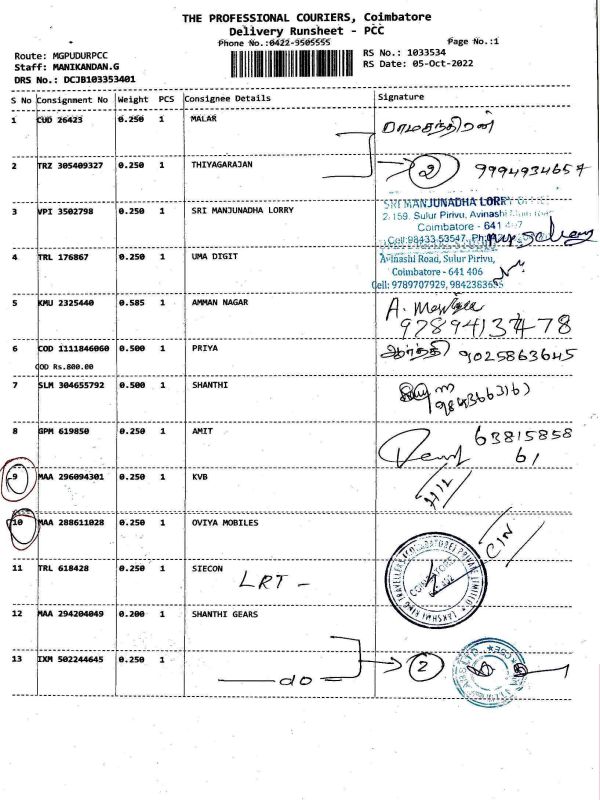 THE PROFESSIONAL COURIERS, Coimbatore
Delivery Runsheet - PCC
Phone No.:0422-9505555
Page No.:1
Route: MGPUDURPCC
RS No.: 1033534
Staff: MANIKANDAN.G
RS Date: 05-Oct-2022
DRS No.: DCJB103353401
S No Consignment No Weight PCS Consignee Details Signature
1 CUD 26423 0.250 1 MALAR ராமசந்திரன்
2 TRZ 305409327 0.250 1 THIYAGARAJAN 2 9994934657
3 VPI 3502798 0.250 1 SRI MANJUNADHA LORRY
SRI MANJUNADHA LORRY
2, 159, Sulur Pirivu, Avinashi
Coimbatore - 641
Cell:98433 53547, Ph:
4 TRL 176867 0.250 1 UMA DIGIT
Avinashi Road, Sulur Pirivu,
Coimbatore - 641 406
Cell: 9789707929,
5 KMU 2325440 0.585 1 AMMAN NAGAR A.
6 COD 1111846060 0.500 1 PRIYA ஆர்த்தி 9025863645
COD Rs.800.00
7 SLM 304655792 0.500 1 SHANTHI
8 GPM 619850 0.250 1 AMIT 63815858
61
9 MAA 296094301 0.250 1 KVB
10 MAA 288611028 0.250 1 OVIYA MOBILES
11 TRL 618428 0.250 1 SIECON
LRT -
LAKSHMI RING TRAVELLERS (COIMBATORE) PRIVATE LIMITED
COIMBATORE
12 MAA 294204049 0.200 1 SHANTHI GEARS
13 IXM 502244645 0.250 1 2
do